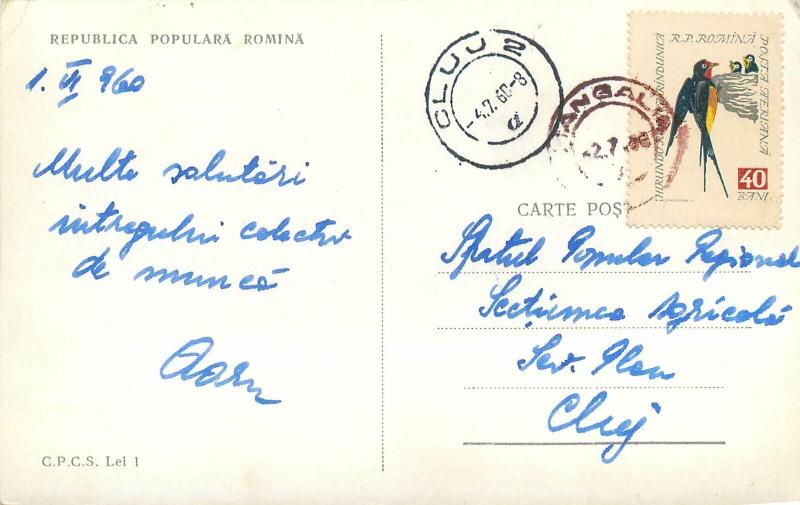 REPUBLICA POPULARĂ ROMÎNĂ
1. VI 960
Multe salutări
întregului colectiv
de muncă
C.P.C.S. Lei 1
CLUJ 2
-4.7.60-8
d
MANGALIA
-2.7
R.P. ROMÎNĂ
POȘTA AERIANĂ
HIRUNDO RUSTICA RÎNDUNICĂ
40
BANI
CARTE POȘT
Sfatul Popular Regional
Secțiunea Agricolă
Serv. Plan
Cluj